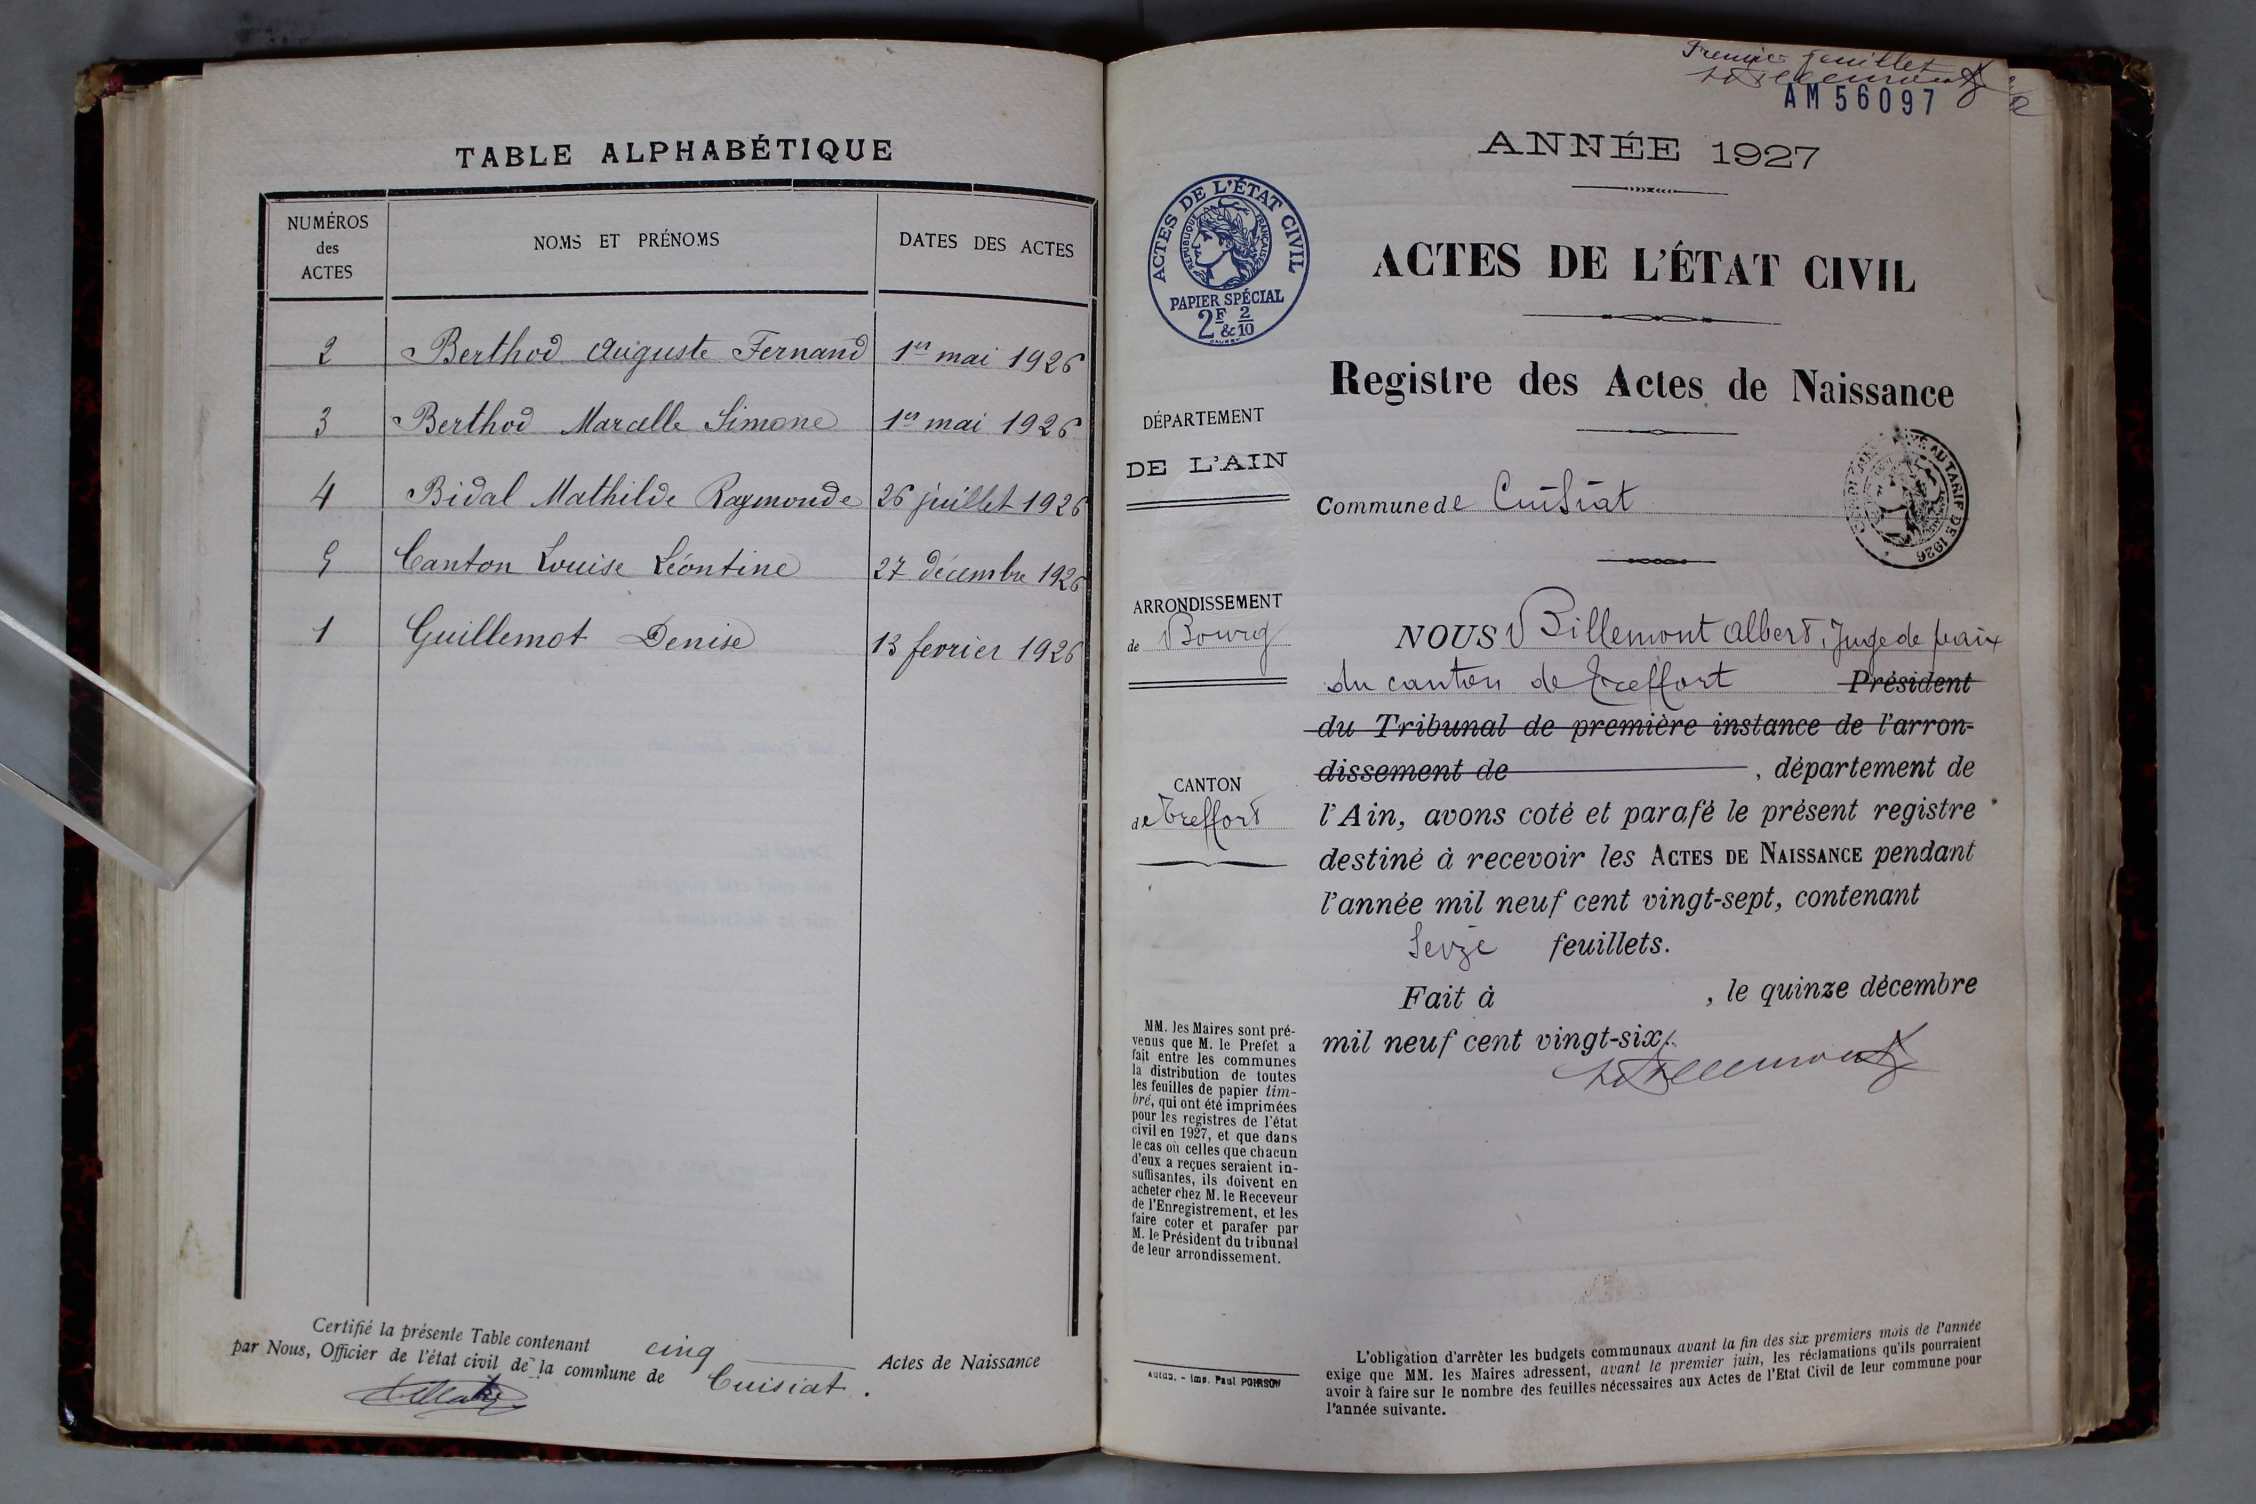 TABLE ALPHABÉTIQUE
NUMÉROS des ACTES
NOMS ET PRÉNOMS
DATES DES ACTES
2 Berthod Auguste Fernand 1er mai 1926
3 Berthod Marcelle Simone 1er mai 1926
4 Bidal Mathilde Raymonde 26 juillet 1926
5 Canton Louise Léontine 27 décembre 1926
1 Guillemot Denise 13 fevrier 1926
Certifié la présente Table contenant cinq Actes de Naissance
par Nous, Officier de l'état civil de la commune de Cuisiat.
Premier feuillet
AM 56097
ANNÉE 1927
ACTES DE L'ÉTAT CIVIL
RÉPUBLIQUE FRANÇAISE
PAPIER SPÉCIAL
2F & 2/10
ACTES DE L'ÉTAT CIVIL
Registre des Actes de Naissance
DÉPARTEMENT
DE L'AIN
Commune de Cuisiat
AU TARIF DE 1926
ARRONDISSEMENT
de Bourg
CANTON
de Treffort
NOUS Billemont Albert, Juge de paix
du canton de Treffort Président
du Tribunal de première instance de l'arron-
dissement de , département de
l'Ain, avons coté et parafé le présent registre
destiné à recevoir les ACTES DE NAISSANCE pendant
l'année mil neuf cent vingt-sept, contenant
Seize feuillets.
Fait à , le quinze décembre
mil neuf cent vingt-six.
MM. les Maires sont pré-
venus que M. le Préfet a
fait entre les communes
la distribution de toutes
les feuilles de papier tim-
bré, qui ont été imprimées
pour les registres de l'état
civil en 1927, et que dans
le cas où celles que chacun
d'eux a reçues seraient in-
suffisantes, ils doivent en
acheter chez M. le Receveur
de l'Enregistrement, et les
faire coter et parafer par
M. le Président du tribunal
de leur arrondissement.
Autun. - Imp. Paul POIRSON
L'obligation d'arrêter les budgets communaux avant la fin des six premiers mois de l'année
exige que MM. les Maires adressent, avant le premier juin, les réclamations qu'ils pourraient
avoir à faire sur le nombre des feuilles nécessaires aux Actes de l'Etat Civil de leur commune pour
l'année suivante.